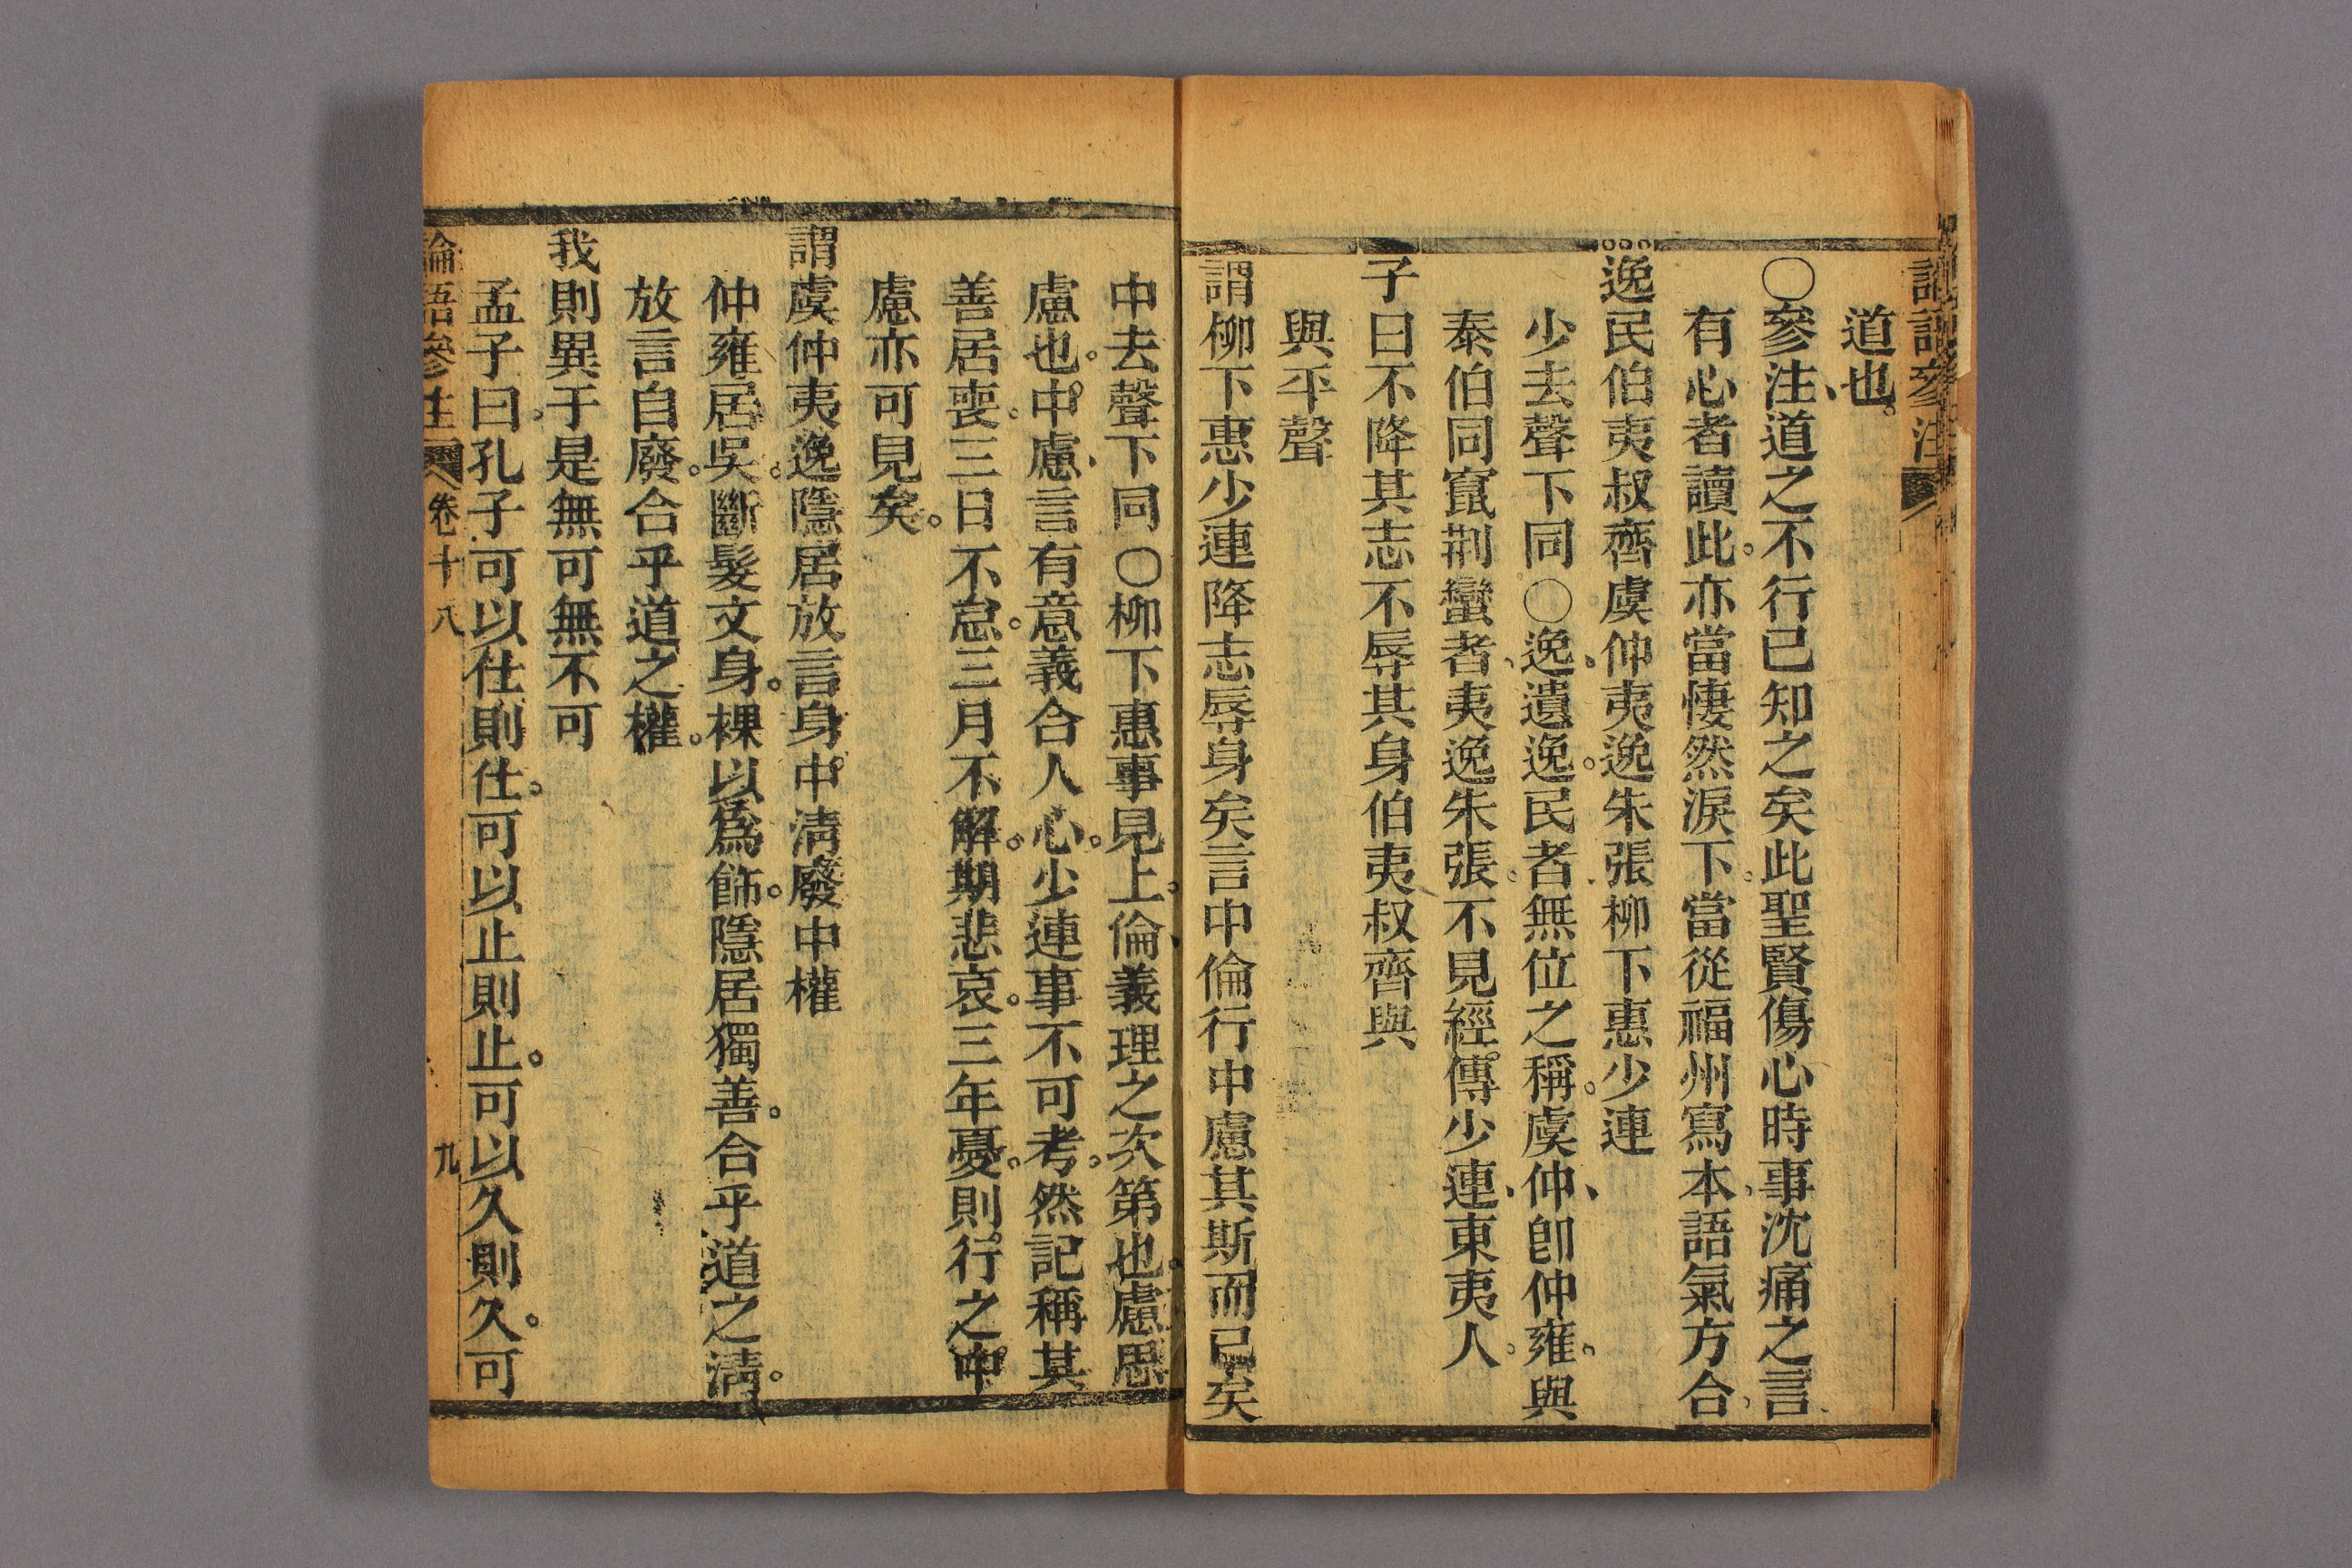 道也。
〇參注、道之不行已知之矣此聖賢傷心時事沈痛之言
有心者讀此。亦當悽然淚下。當從福州寫本語氣方合
逸民伯夷叔齊虞仲夷逸朱張柳下惠少連
少去聲下同〇逸、遺逸。民者無位之稱。虞仲、卽仲雍。與
泰伯同竄荆蠻者、夷逸朱張。不見經傳少連、東夷人。
子曰不降其志不辱其身伯夷叔齊與
與平聲
謂柳下惠少連降志辱身矣言中倫行中慮其斯而已矣
中去聲下同〇柳下惠事見上。倫、義理之次第也。慮思
慮也。中慮、言有意義合人心。少連事不可考。然記稱其
善居喪。三日不怠。三月不解。期悲哀。三年憂。則行之中
慮亦可見矣。
謂虞仲夷逸隱居放言身中淸廢中權
仲雍居吳。斷髮文身。裸以爲飾。隱居獨善。合乎道之淸。
放言自廢。合乎道之權。
我則異于是無可無不可
孟子曰。孔子可以仕則仕。可以止則止。可以久則久。可
論語參注 卷十八 九